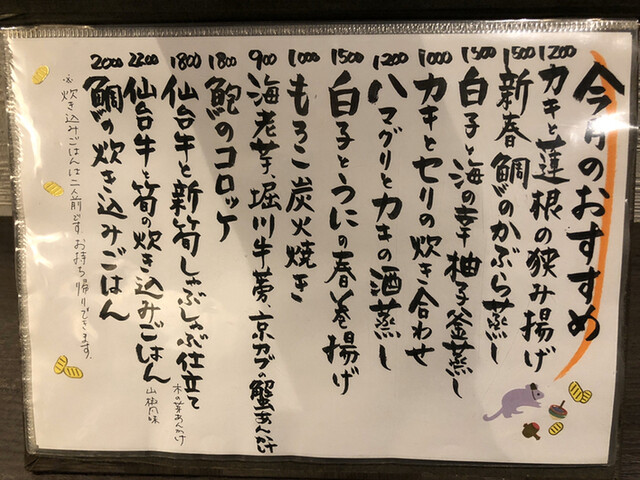 今月のおすすめ
1200 カキと蓮根の狭み揚げ
1500 新春鯛のかぶら蒸し
1500 白子と海の幸 柚子釜蒸し
1000 カキとセリの炊き合わせ
1200 ハマグリとカキの酒蒸し
1500 白子とうにの春巻揚げ
1000 もろこ炭火焼き
900 海老芋、堀川牛蒡、京カブの蟹あんかけ
1800 鮑のコロッケ
1800 仙台牛と新筍しゃぶしゃぶ仕立て
木の芽あんかけ
2200 仙台牛と筍の炊き込みごはん
山椒風味
2000 鯛の炊き込みごはん
※炊き込みごはんは二人前です お持ち帰りできます。